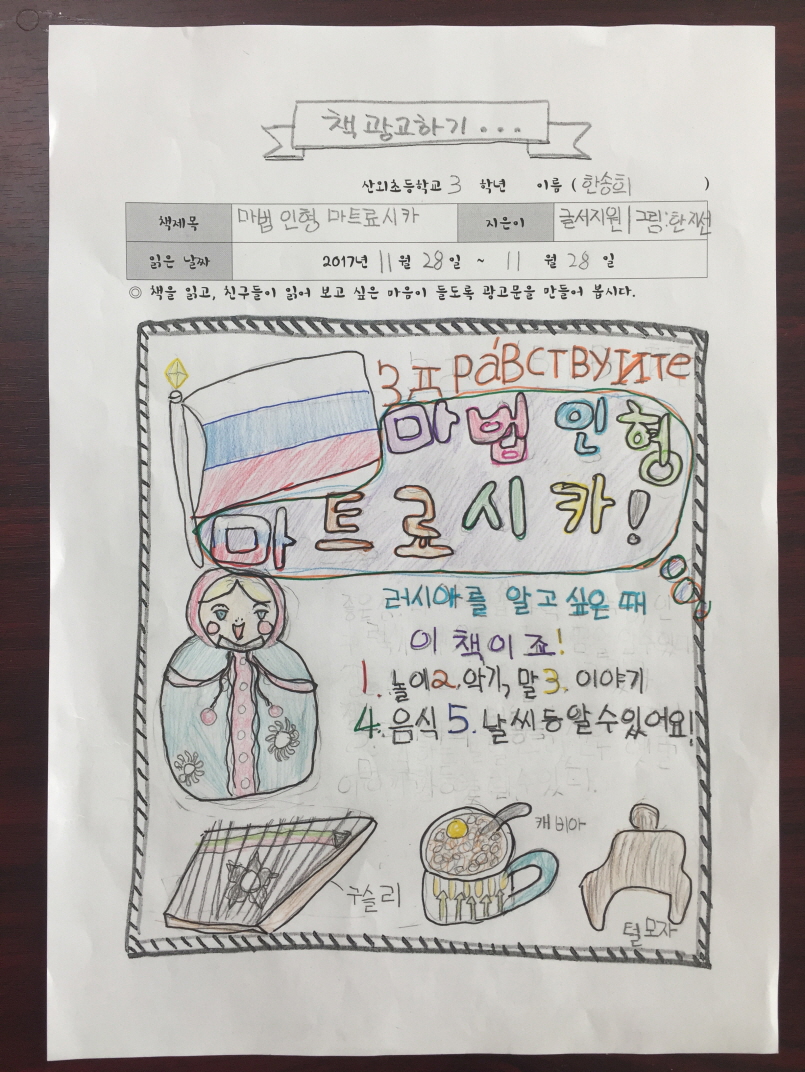 책 광고하기...
산외초등학교 3 학년 이름 ( 한송희 )
책제목 마법 인형 마트료시카 지은이 글서지원 | 그림:한지선
읽은 날짜 2017년 11월 28일 ~ 11 월 28 일
◎ 책을 읽고, 친구들이 읽어 보고 싶은 마음이 들도록 광고문을 만들어 봅시다.
ЗДРáВСТВУИТе
마법 인형
마트료시카!
러시아를 알고싶은 때
이 책이죠!
1. 놀이 2. 악기, 말 3. 이야기
4. 음식 5. 날씨 등 알 수 있어요!
캐비아
구슬리
털모자